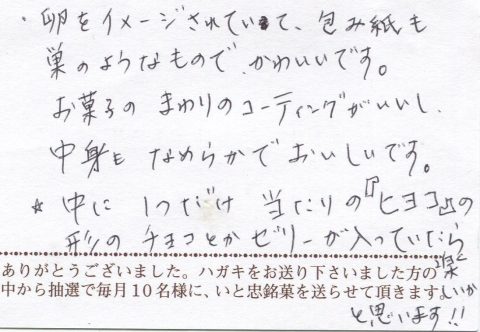 ・卵をイメージされていて、包み紙も
巣のようなもので、かわいいです。
お菓子の まわりのコーティングがいいし、
中身も なめらかで おいしいです。
☆ 中に 1つだけ 当たりの『ヒヨコ』の
形の チョコとか ゼリーが 入っていたら
楽しいか
と思います!!
ありがとうございました。ハガキをお送り下さいました方の
中から抽選で毎月10名様に、いと忠銘菓を送らせて頂きます。